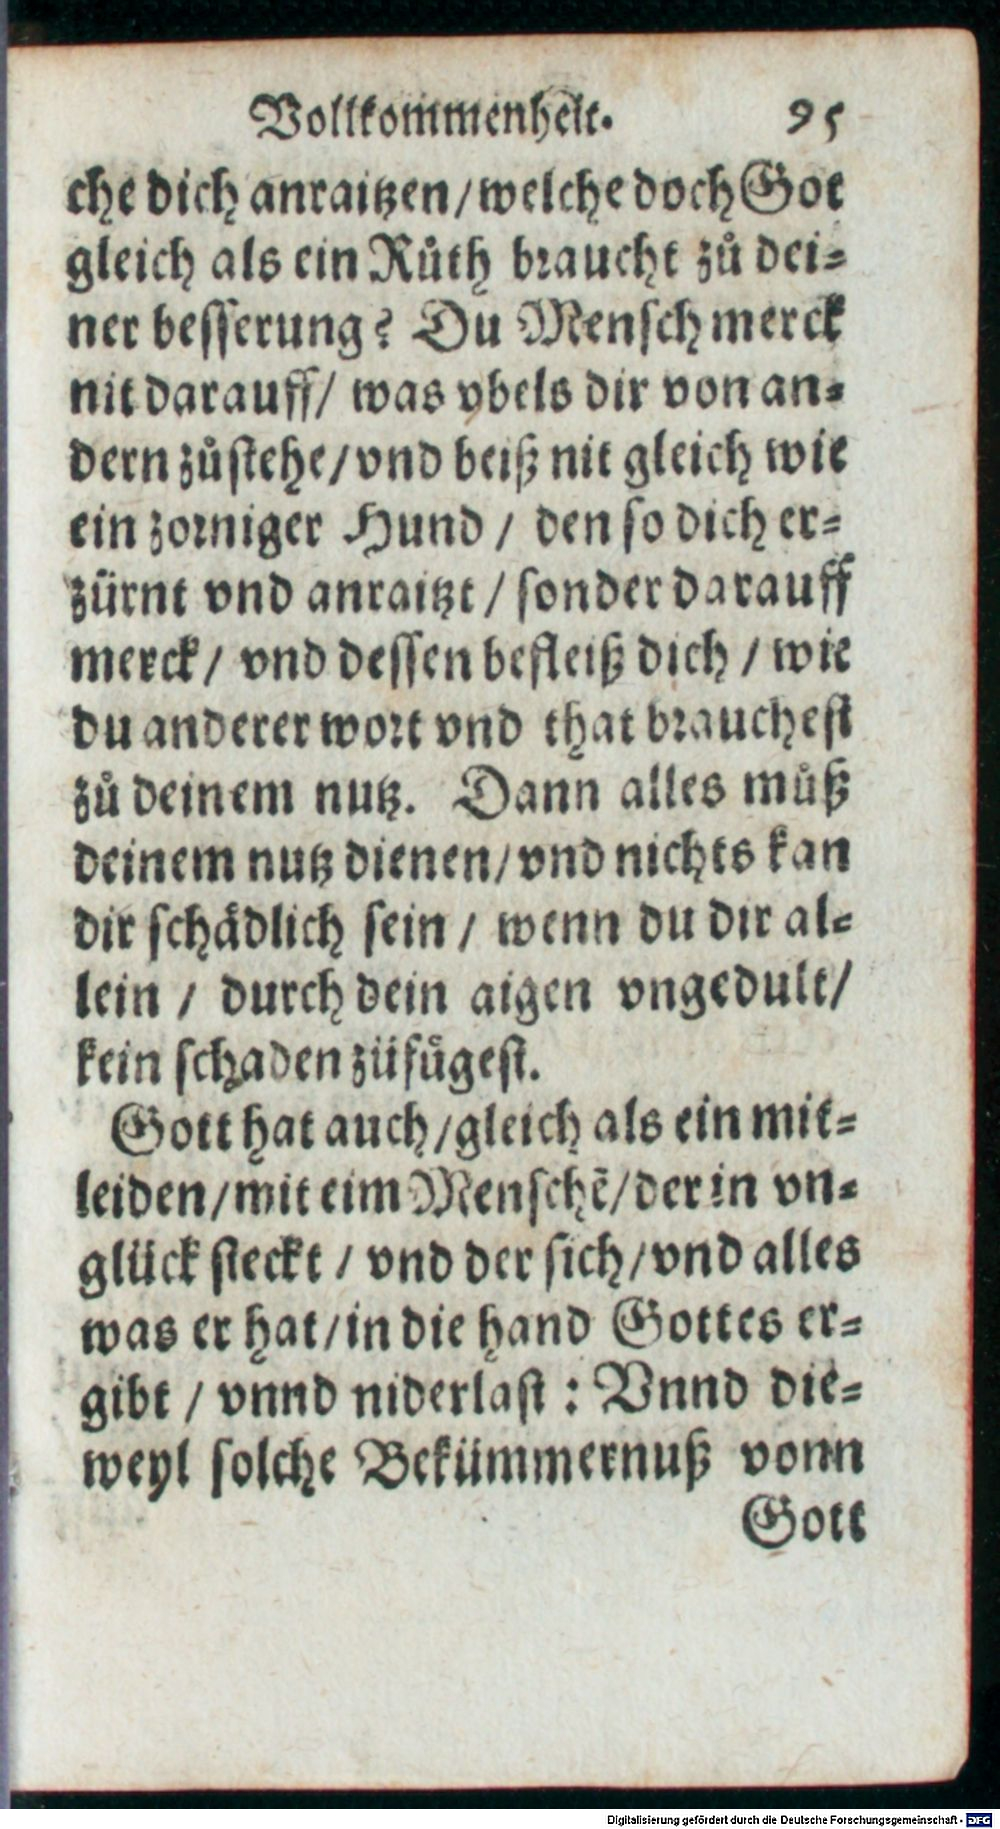 Vollkommenheit. 95
che dich anraitzen/welche doch Got
gleich als ein Růth braucht zů dei-
ner besserung? Du Mensch merck
nit darauff/ was vbels dir von an-
dern zůstehe/vnd beiß nit gleich wie
ein zorniger Hund / den so dich er-
zürnt vnd anraitzt / sonder darauff
merck/ vnd dessen befleiß dich / wie
du anderer wort vnd that brauchest
zů deinem nutz. Dann alles můß
deinem nutz dienen/vnd nichts kan
dir schådlich sein / wenn du dir al-
lein / durch dein aigen vngedult/
kein schaden zůfůgest.
Gott hat auch/gleich als ein mit-
leiden/mit eim Menschẽ/der in vn-
glück steckt / vnd der sich/vnd alles
was er hat/in die hand Gottes er-
gibt / vnnd niderlast : Vnnd die-
weyl solche Bekümmernuß vonn
Gott
Digitalisierung gefördert durch die Deutsche Forschungsgemeinschaft - DFG